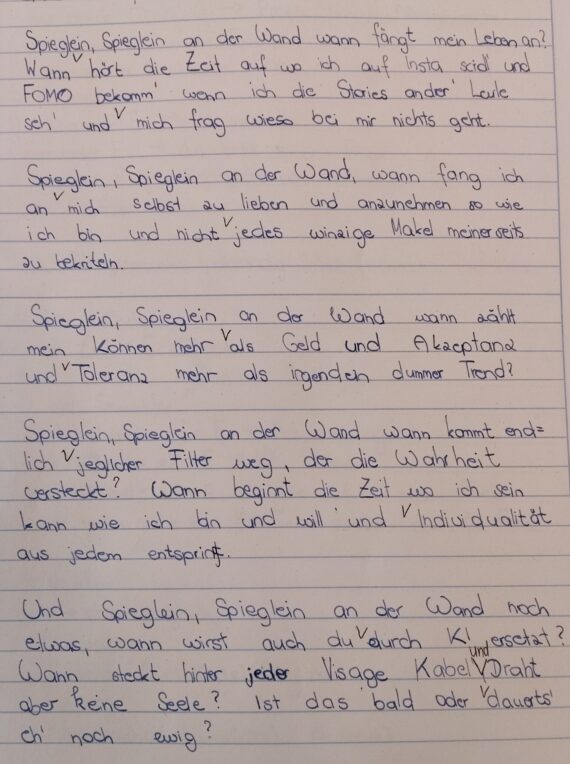 Spieglein, Spieglein an der Wand wann fängt mein Leben an?
Wann ˅ hört die Zeit auf wo ich auf Insta seid' und
FOMO bekomm' wenn ich die Stories ander' Leute
seh' und ˅ mich frag wieso bei mir nichts geht.
Spieglein, Spieglein an der Wand, wann fang ich
an ˅ mich selbst zu lieben und anzunehmen so wie
ich bin und nicht ˅ jedes winzige Makel meinerseits
zu bekriteln.
Spieglein, Spieglein an der Wand wann zählt
mein Können mehr ˅ als Geld und Akzeptanz
und ˅ Toleranz mehr als irgendein dummer Trend?
Spieglein, Spieglein an der Wand wann kommt end=
lich ˅ jeglicher Filter weg, der die Wahrheit
versteckt? Wann beginnt die Zeit wo ich sein
kann wie ich bin und will und ˅ Individualität
aus jedem entspringt.
Und Spieglein, Spieglein an der Wand noch
etwas, wann wirst auch du ˅ durch KI ersetzt?
Wann steckt hinter jeder Visage Kabel und ˅ Draht
aber keine Seele? Ist das bald oder ˅ dauerts'
eh' noch ewig?